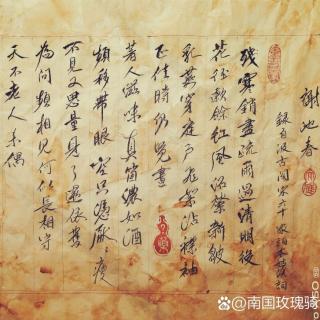 謝池春
録自汲古閣宋六十家詞本姑溪詞
殘寒銷盡疏雨過清明後
花徑歛餘紅風沼縈新皺
乳燕穿庭户飛絮沾襟袖
正佳時仍晚晝
著人滋味真箇濃如酒
頻移帶眼空只恁厭々瘦
不見又思量見了還依舊
為問頻相見何似長相守
天不老人未偶
南国玫瑰骑